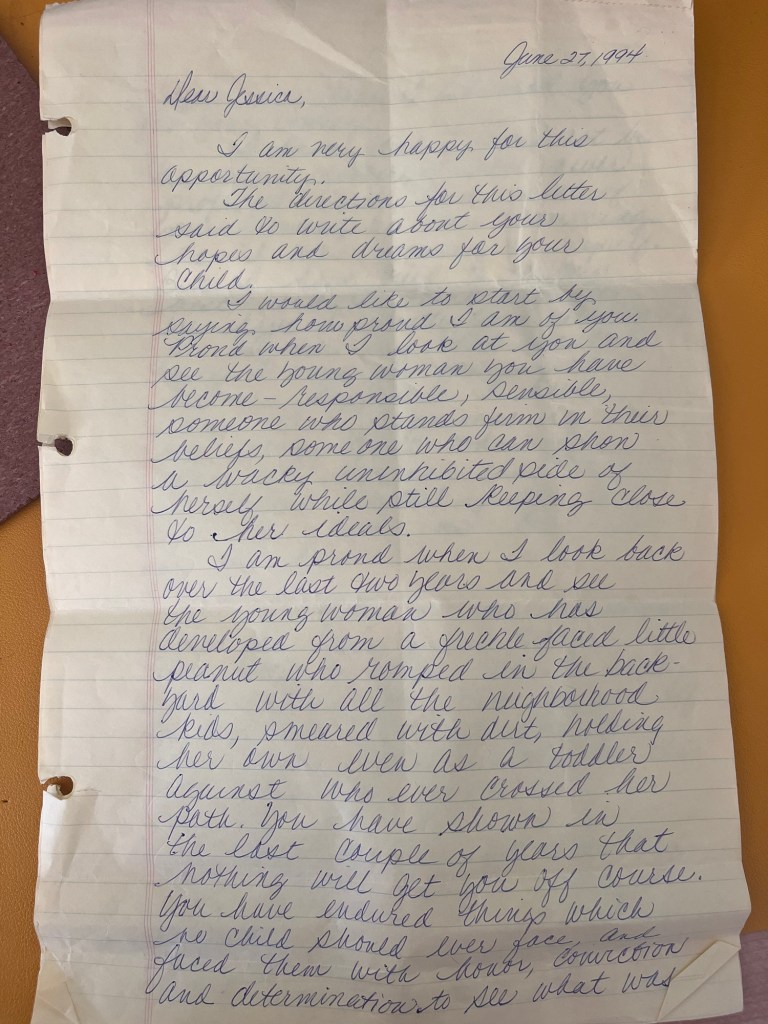 June 27, 1994
Dear Jessica,
I am very happy for this
opportunity.
The directions for this letter
said to write about your
hopes and dreams for your
child.
I would like to start by
saying how proud I am of you.
Proud when I look at you and
see the young woman you have
become - responsible, sensible,
someone who stands firm in their
beliefs, some one who can show
a wacky uninhibited side of
herself while still keeping close
to her ideals.
I am proud when I look back
over the last two years and see
the young woman who has
developed from a freckle faced little
peanut who romped in the back-
yard with all the neighborhood
kids, smeared with dirt, holding
her own even as a toddler
against who ever crossed her
path. You have shown in
the last couple of years that
nothing will get you off course.
You have endured things which
no child should ever face, and
faced them with honor, conviction
and determination to see what was